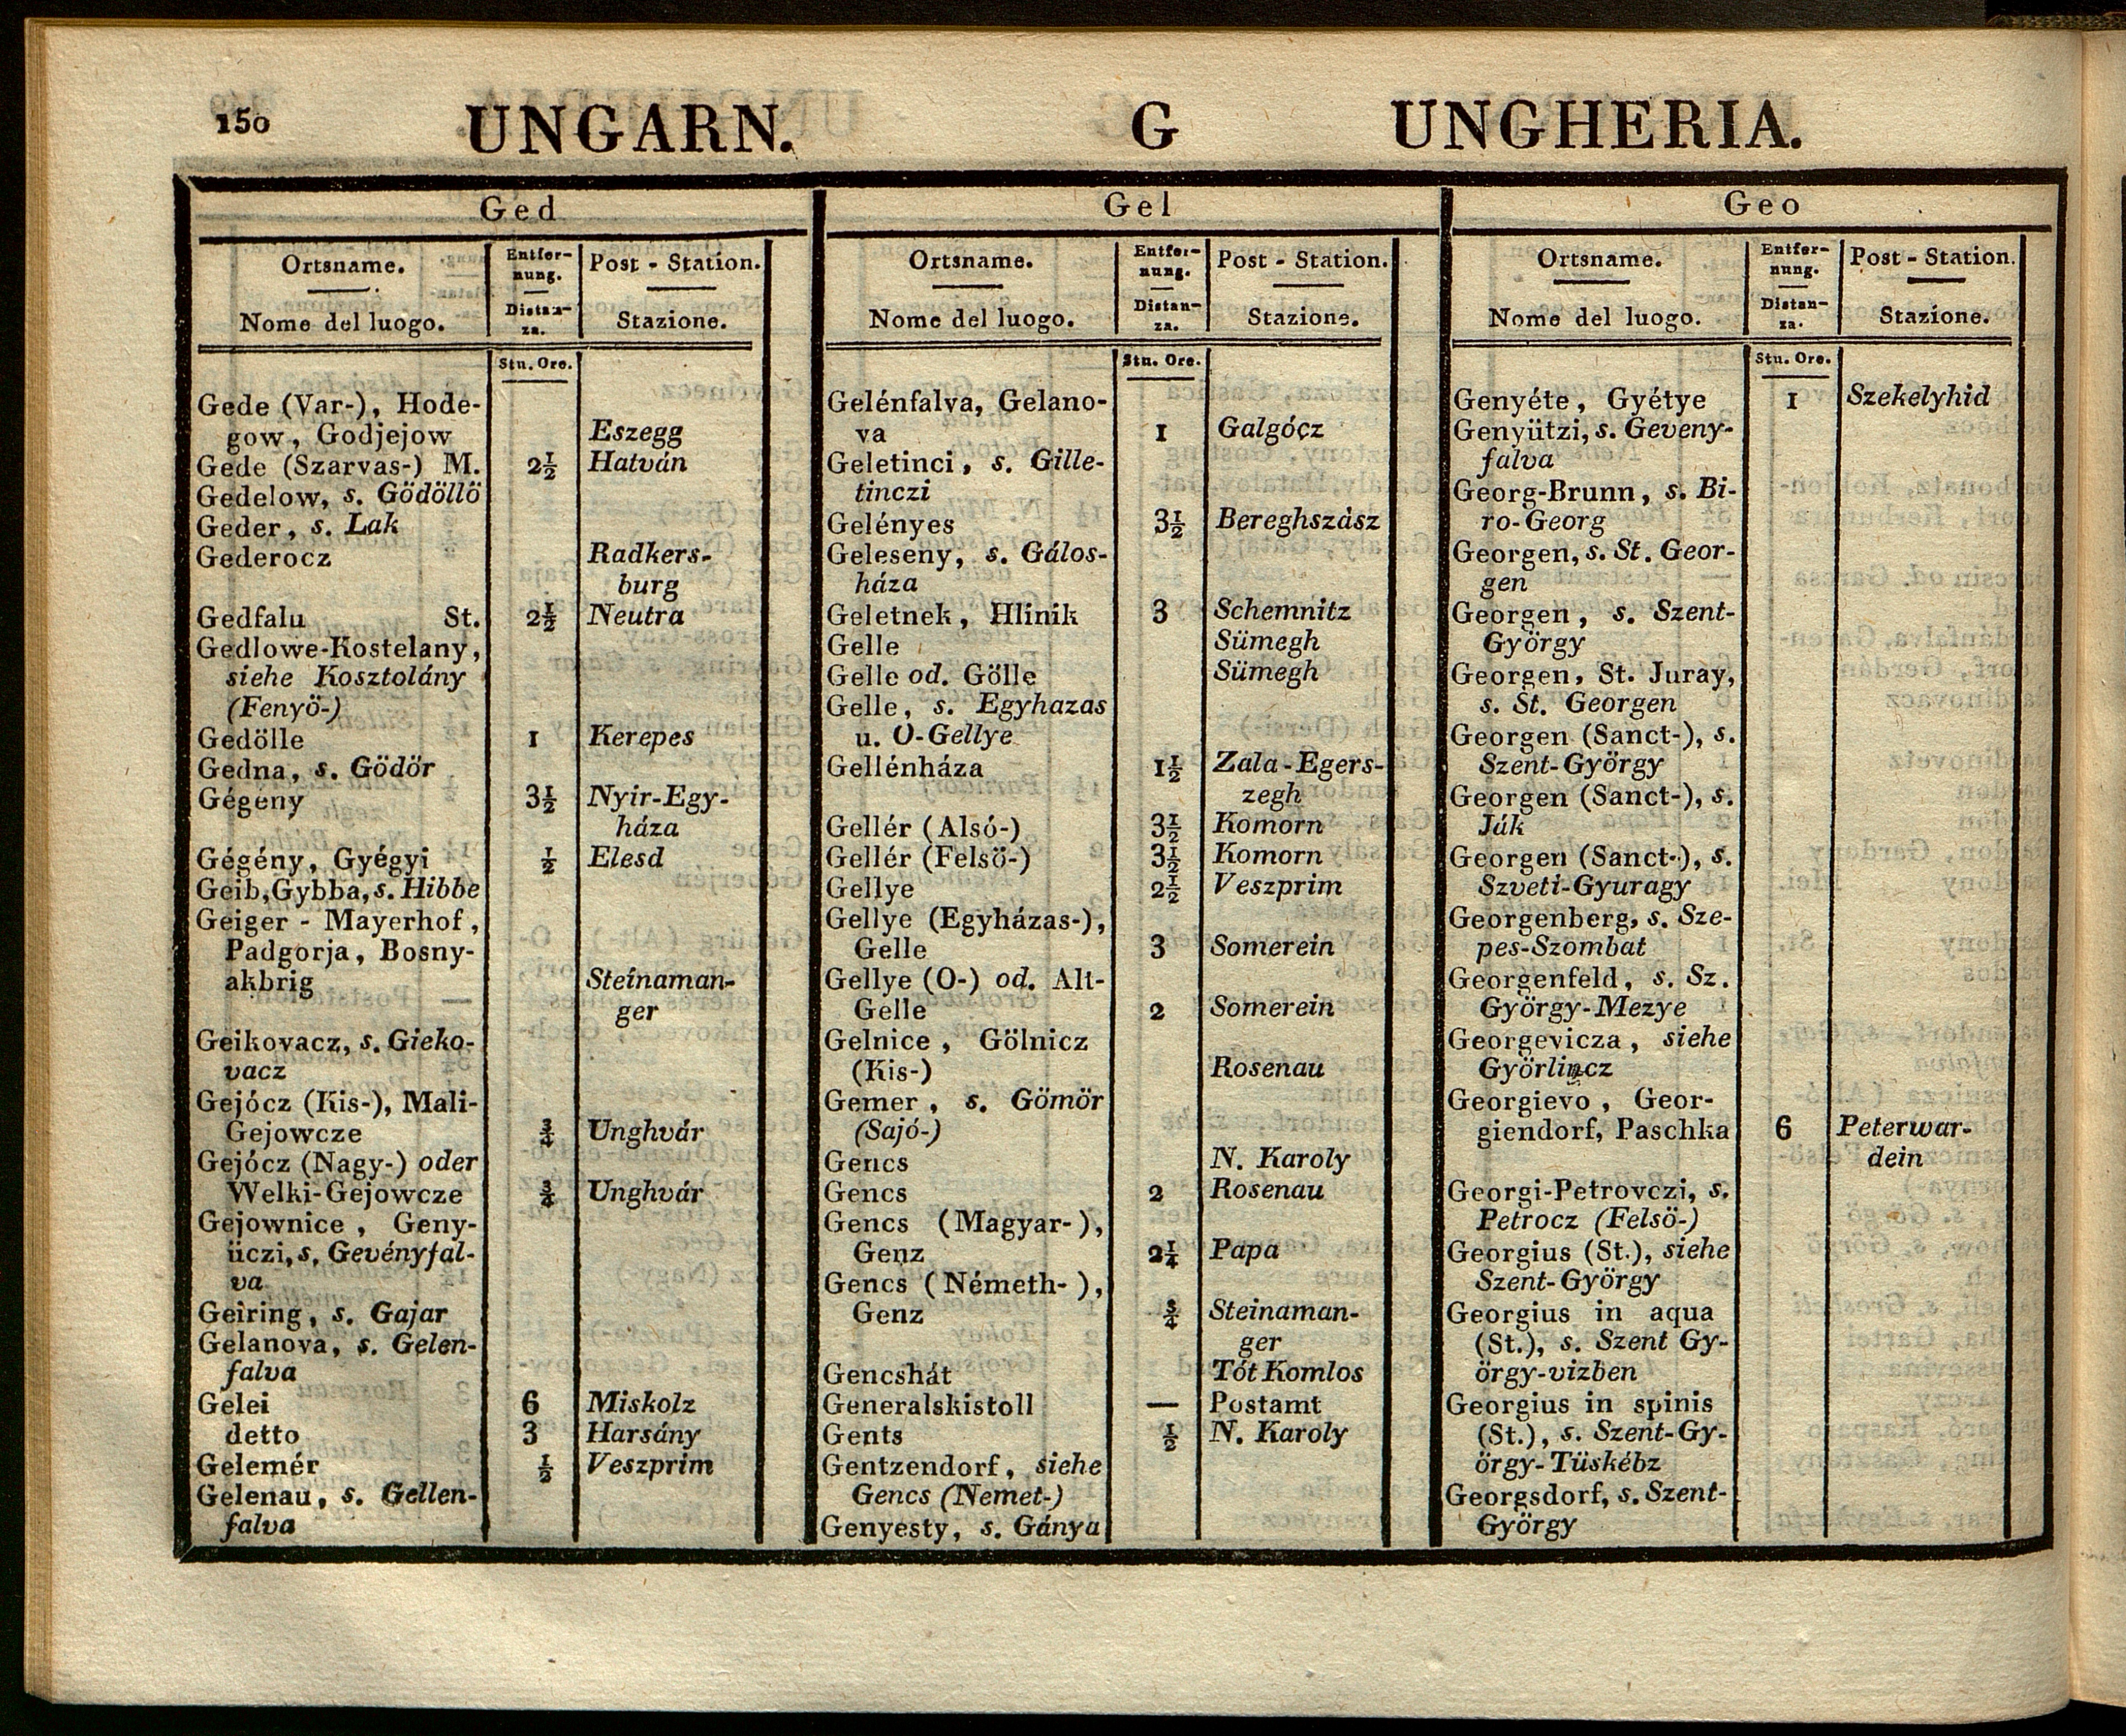 150 UNGARN. G UNGHERIA.
Ged
Ortsname. Entfer- Post - Station.
nung.
Nome del luogo. Distan- Stazione.
za.
Stn. Ore.
Gede (Var-), Hode-
gow, Godjejow Eszegg
Gede (Szarvas-) M. 2½ Hatván
Gedelow, s. Gödöllö
Geder, s. Lak
Gederocz Radkers-
burg
Gedfalu St. 2½ Neutra
Gedlowe-Kostelany,
siehe Kosztolány
(Fenyö-)
Gedölle 1 Kerepes
Gedna, s. Gödör
Gégeny 3½ Nyir-Egy-
háza
Gégény, Gyégyi ½ Elesd
Geib, Gybba, s. Hibbe
Geiger - Mayerhof,
Padgorja, Bosny-
akbrig Steinaman-
ger
Geikovacz, s. Gieko-
vacz
Gejócz (Kis-), Mali-
Gejowcze ¾ Unghvár
Gejócz (Nagy-) oder
Welki-Gejowcze ¾ Unghvár
Gejownice, Geny-
üczi, s, Gevényfal-
va
Geiring, s. Gajar
Gelanova, s. Gelen-
falva
Gelei 6 Miskolz
detto 3 Harsány
Gelemér ½ Veszprim
Gelenau, s. Gellen-
falva
Gel
Ortsname. Entfer- Post - Station.
nung.
Nome del luogo. Distan- Stazione.
za.
Stn. Ore.
Gelénfalva, Gelano-
va 1 Galgócz
Geletinci, s. Gille-
tinczi
Gelényes 3½ Bereghszász
Geleseny, s. Gálos-
háza
Geletnek, Hlinik 3 Schemnitz
Gelle Sümegh
Gelle od. Gölle Sümegh
Gelle, s. Egyhazas
u. O-Gellye
Gellénháza 1½ Zala-Egers-
zegh
Gellér (Alsó-) 3½ Komorn
Gellér (Felsö-) 3½ Komorn
Gellye 2½ Veszprim
Gellye (Egyházas-),
Gelle 3 Somerein
Gellye (O-) od. Alt-
Gelle 2 Somerein
Gelnice, Gölnicz
(Kis-) Rosenau
Gemer, s. Gömör
(Sajó-)
Gencs N. Karoly
Gencs 2 Rosenau
Gencs (Magyar-),
Genz 2¼ Papa
Gencs (Németh-),
Genz ¾ Steinaman-
ger
Gencshát Tót Komlos
Generalskistoll — Postamt
Gents ½ N. Karoly
Gentzendorf, siehe
Gencs (Nemet-)
Genyesty, s. Gánya
Geo
Ortsname. Entfer- Post - Station.
nung.
Nome del luogo. Distan- Stazione.
za.
Stn. Ore.
Genyéte, Gyétye 1 Szekelyhid
Genyützi, s. Geveny-
falva
Georg-Brunn, s. Bi-
ro-Georg
Georgen, s. St. Geor-
gen
Georgen, s. Szent-
György
Georgen, St. Juray,
s. St. Georgen
Georgen (Sanct-), s.
Szent-György
Georgen (Sanct-), s.
Ják
Georgen (Sanct-), s.
Szveti-Gyuragy
Georgenberg, s. Sze-
pes-Szombat
Georgenfeld, s. Sz.
György-Mezye
Georgevicza, siehe
Györlincz
Georgievo, Geor-
giendorf, Paschka 6 Peterwar-
dein
Georgi-Petrovczi, s.
Petrocz (Felsö-)
Georgius (St.), siehe
Szent-György
Georgius in aqua
(St.), s. Szent Gy-
örgy-vizben
Georgius in spinis
(St.), s. Szent-Gy-
örgy-Tüskébz
Georgsdorf, s. Szent-
György